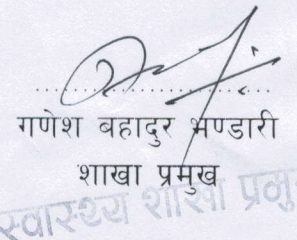 ....................................
गणेश बहादुर भण्डारी
शाखा प्रमुख
स्वास्थ्य शाखा प्रमुख